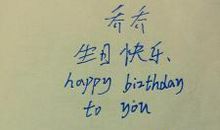 乔乔
生日快乐
happy birthday
to you